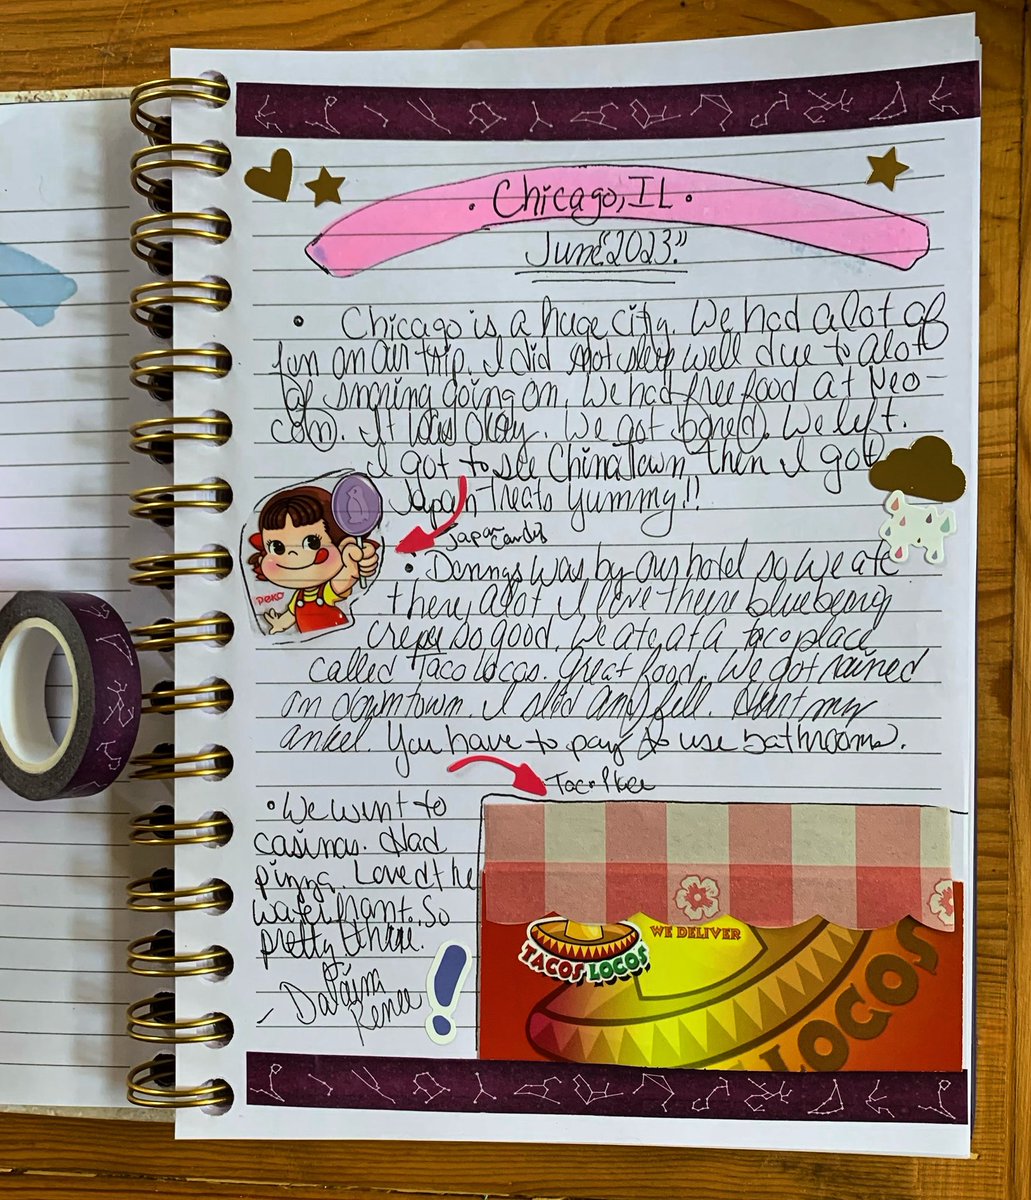 · Chicago, IL ·
June "2023"
• Chicago is a huge city. We had alot of
fun on our trip. I did not sleep well due to alot
of snoring going on. We had free food at Neo-
con. It was okay. We got bored. We left.
I got to see Chinatown then I got
Japan treats yummy!!
Japan Candy
peko
• Dennys was by our hotel so we ate
there, alot I love there blueberry
crepes so good. We ate at a taco place
called Taco Locos. Great food. We got rained
on downtown. I slid and fell. Hurt my
ankel. You have to pay to use bathrooms.
Taco Place
• We went to
casinos. Had
pizza. Loved the
waterfront. So
pretty there.
Renee
WE DELIVER
TACOS LOCOS
LOCOS